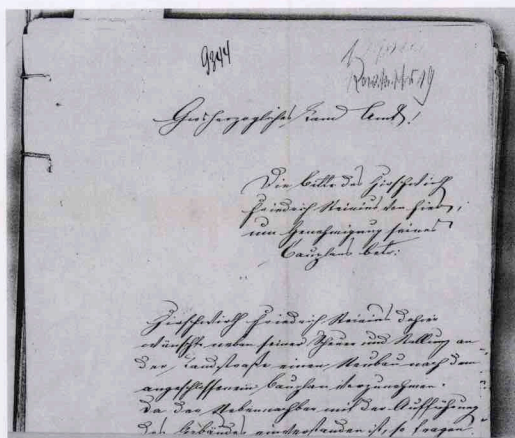 9844
Großherzogliches Land Amt!
Die Bitte des Hirschwirth
Friedrich von hier,
um Genehmigung seines
Bauplans betr:
Hirschwirth Friedrich dahier
wünscht neben seiner Scheuer und Stallung an
der Landstraße einen Neubau nach dem
angeschlossenen Bauplan vorzunehmen.
Da der Nebennachbar mit der Aufführung
des Gebäudes einverstanden ist, so tragen